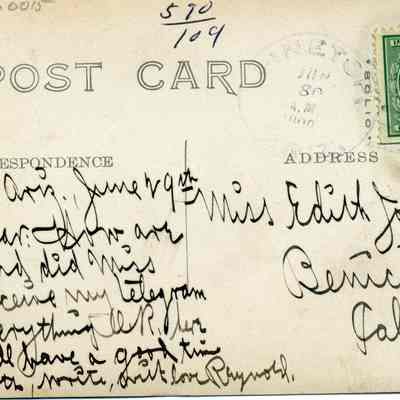 0015
590
109
POST CARD
JUN
30
A.M
ESPONDENCE
ADDRESS
Ariz., June 29th
How are
did Miss
my telegram
everything O.K.
have a good time
write, with love Reynold.
Miss Edith Jo
Benic
Cal